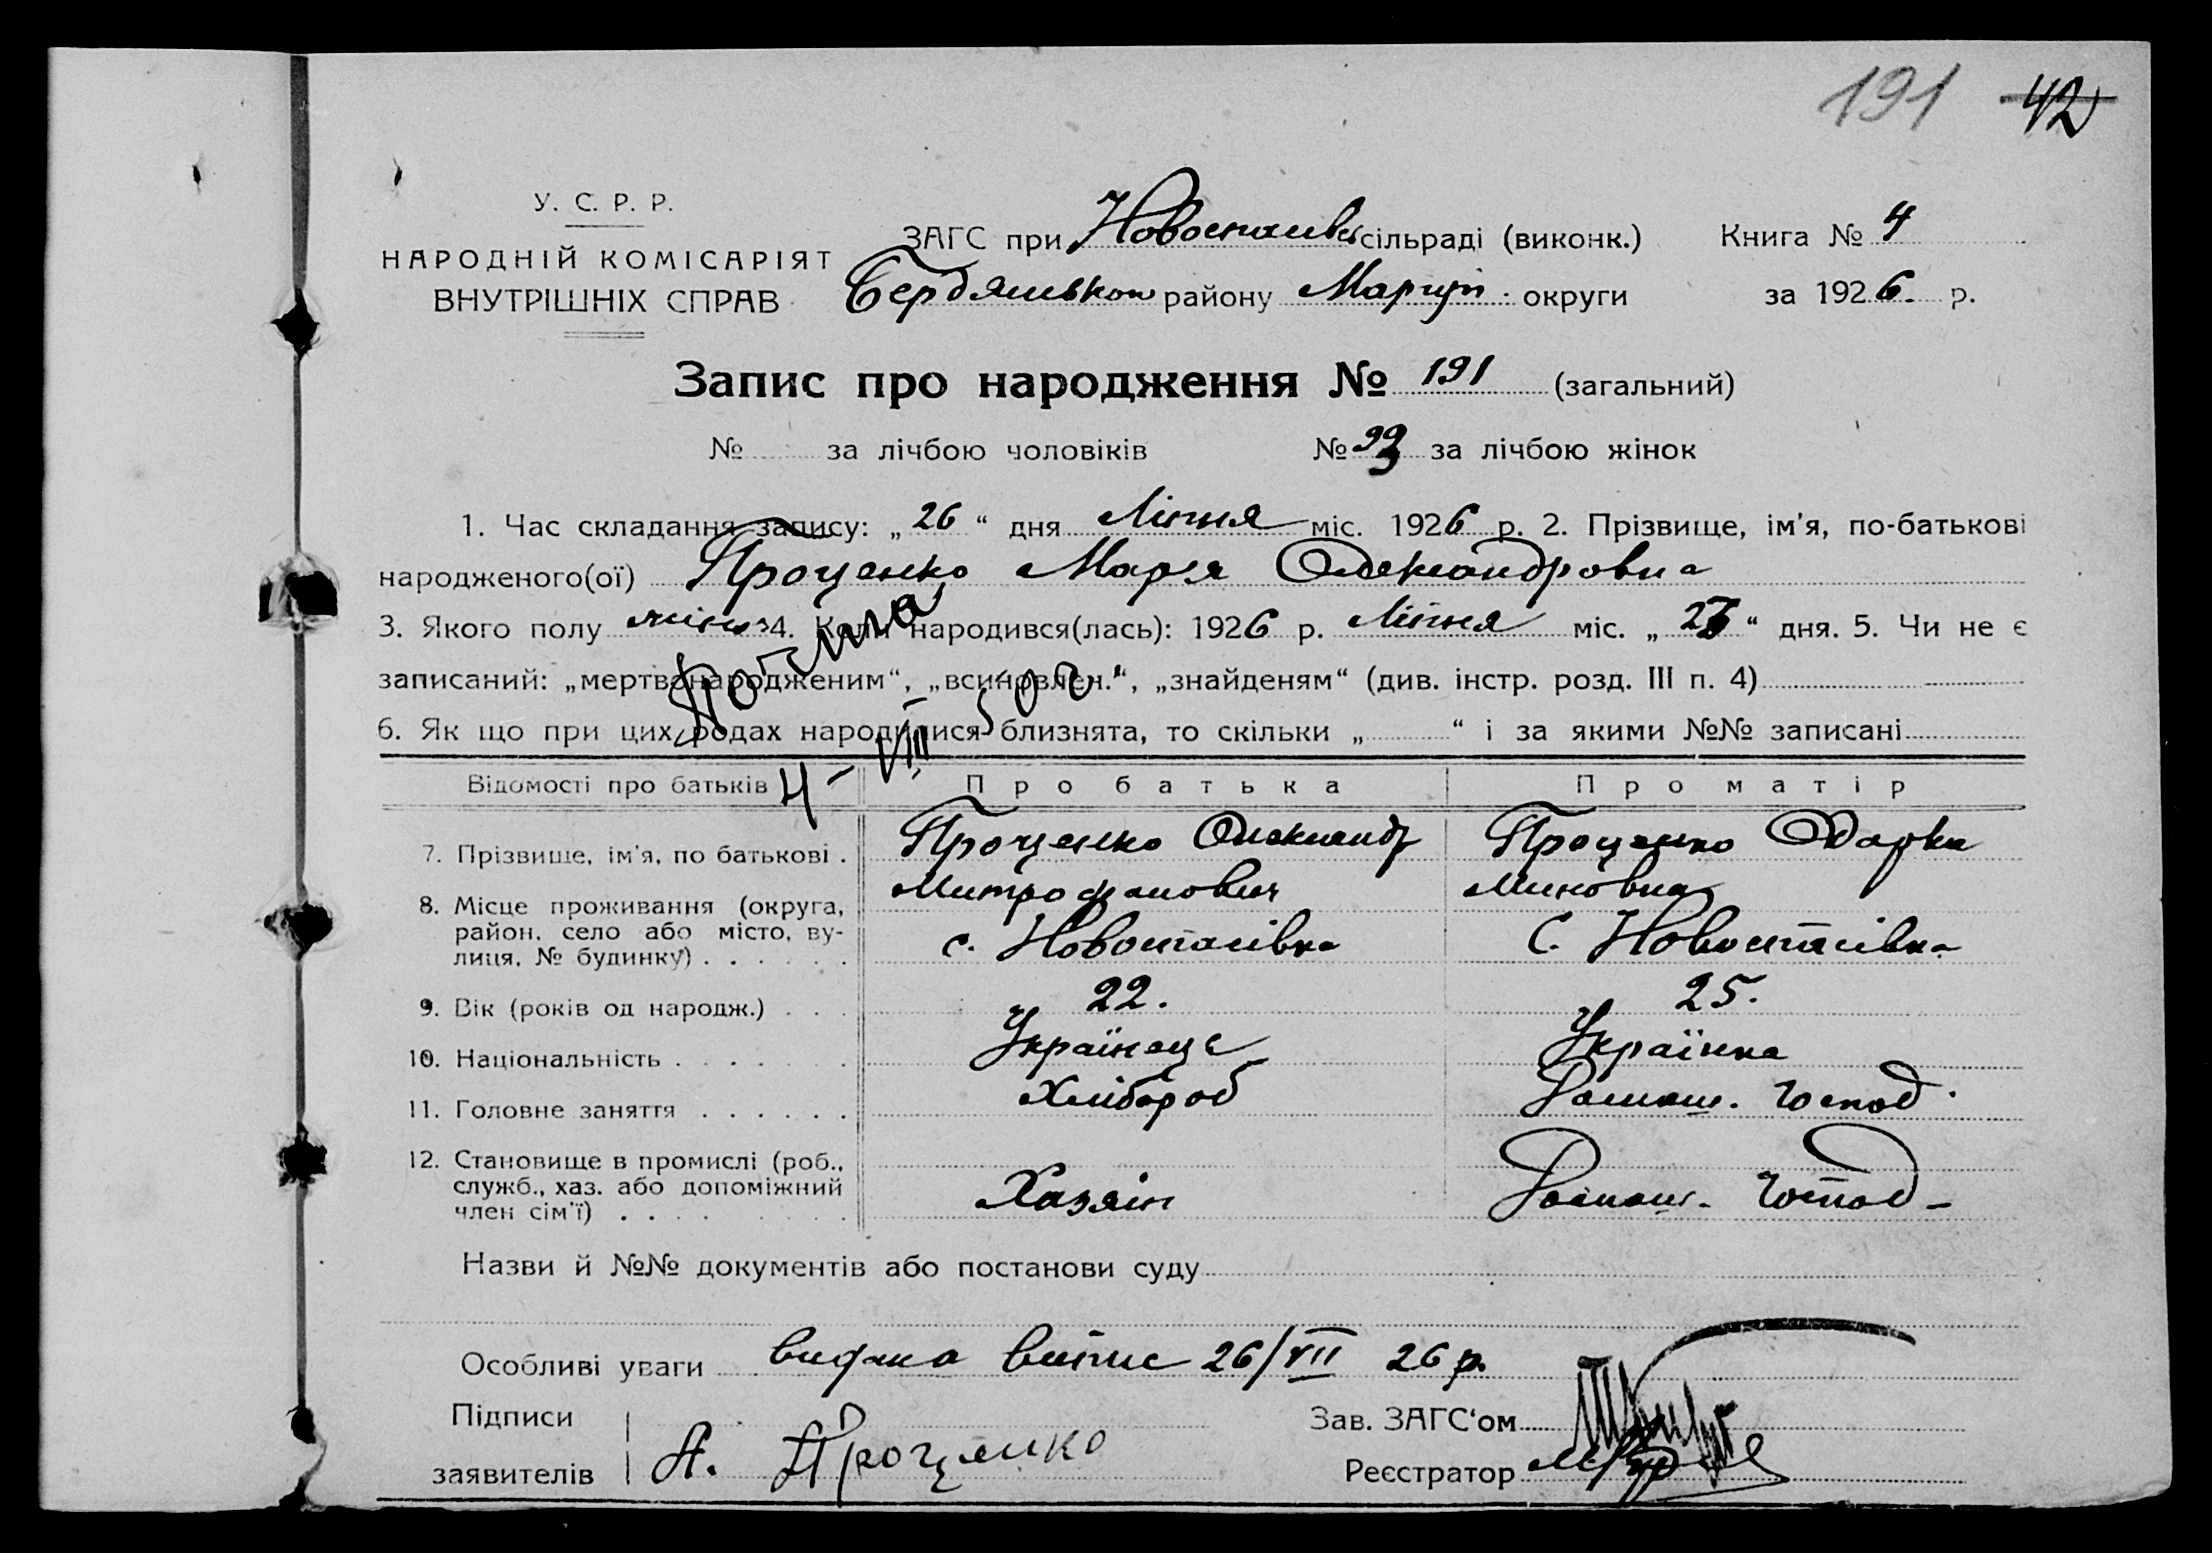 191 42
У. С. Р. Р.
НАРОДНІЙ КОМІСАРІЯТ
ВНУТРІШНІХ СПРАВ
ЗАГС при Новоспаівс сільраді (виконк.) Книга № 4
району Маріуп. округи за 1926. р.
Запис про народження № 191 (загальний)
№ за лічбою чоловіків № 93 за лічбою жінок
1. Час складання запису: „26“ дня Ліпня міс. 1926 р. 2. Прізвище, ім'я, по-батькові
народженого(ої) Проценко Марія Олександровна
3. Якого полу жіноч 4. Коли народився(лась): 1926 р. Ліпня міс. „ “ дня. 5. Чи не є
записаний: „мертвонародженим“, „всиновлен.“, „знайденям“ (див. інстр. розд. III п. 4)
6. Як що при цих родах народилися близнята, то скільки „ “ і за якими №№ записані
4 – VIII
Відомості про батьків Про батька Про матір
7. Прізвище, ім'я, по батькові . Проценко Олександр Проценко Одарка
Митрофанович Миновна
8. Місце проживання (округа,
район, село або місто, ву-
лиця, № будинку) . . . . . . с. Новоспасівка С. Новоспасівка
9. Вік (років од народж.) . . . 22. 25.
10. Національність . . . . . . Українець Українка
11. Головне заняття . . . . . . Хлібороб Домаш. господ.
12. Становище в промислі (роб.,
служб., хаз. або допоміжний
член сім'ї) . . . . Хазяін Домаш. господ –
Назви й №№ документів або постанови суду
Особливі уваги видана випис 26/VII 26 р.
Підписи
заявителів А. Проценко
Зав. ЗАГС'ом
Реєстратор